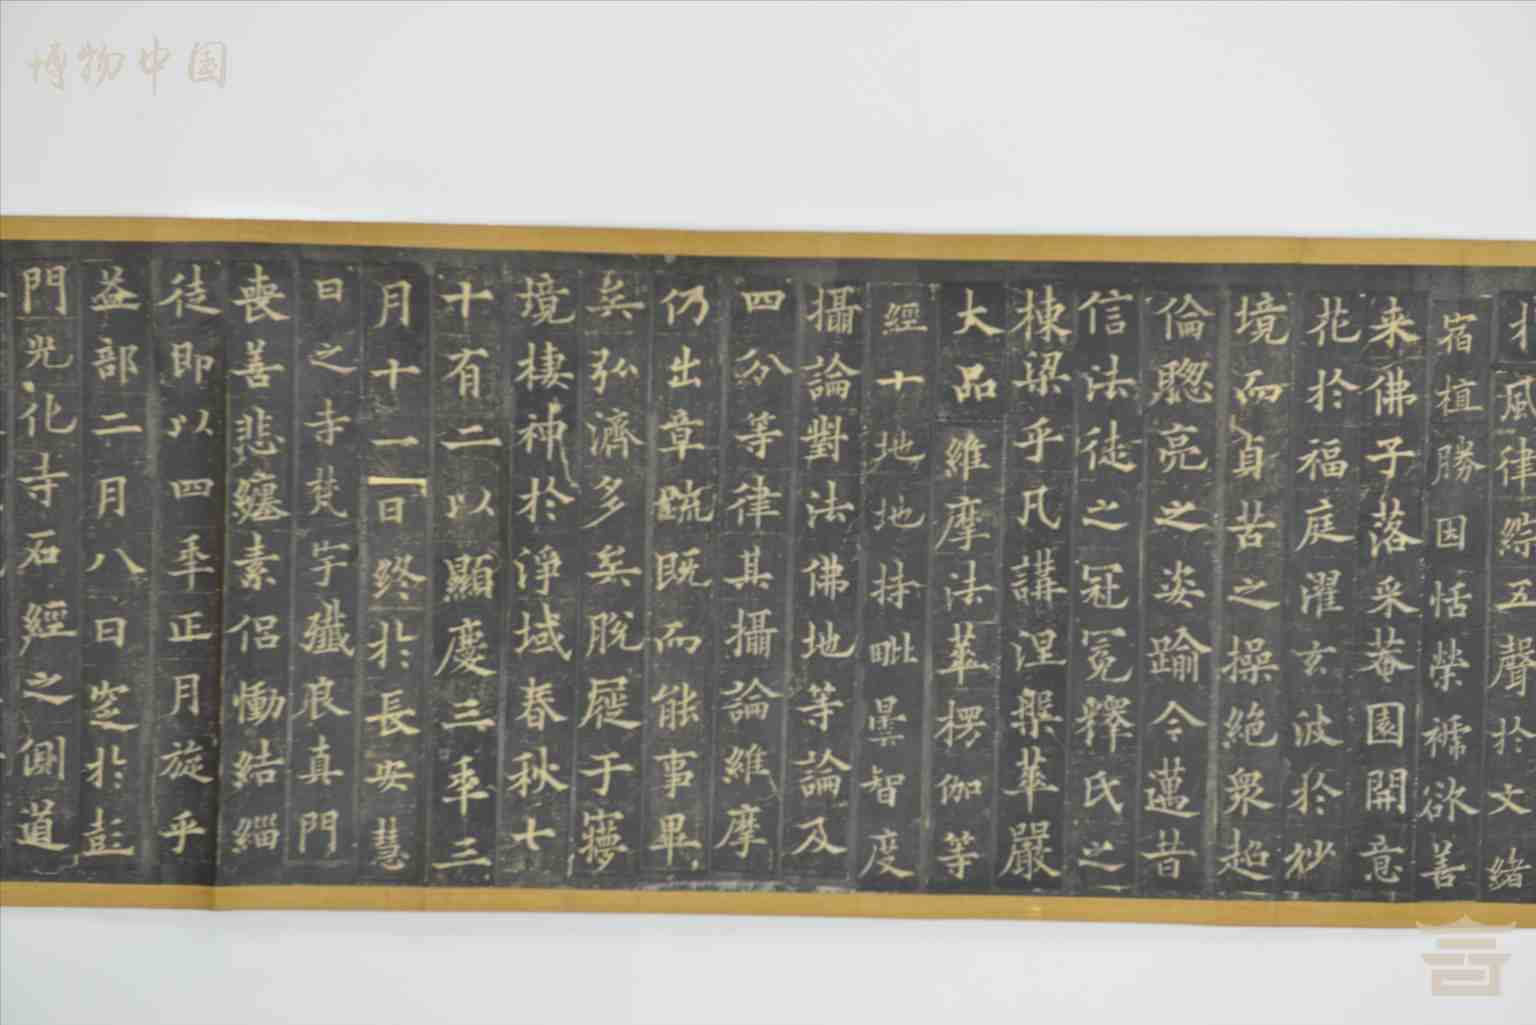 博物中国
風律綜五聲於文緒
宿植勝因恬榮褥欲善
来佛子落采菴園開意
花於福庭濯玄波於妙
境而貞苦之操絶衆超
倫聦亮之姿踰今邁昔
信法徒之冠冕釋氏之
棟梁乎凡講涅槃華嚴
大品維摩法華楞伽等
經十地地持毗曇智度
攝論對法佛地等論及
四分等律其攝論維摩
仍出章䟽既而能事畢
矣弘濟多矣脫屣于㝱
境棲神於淨域春秋七
十有二以顯慶三年三
月十一日終於長安慧
日之寺梵宇殲良真門
喪善悲纏素侶慟結緇
徒即以四年正月旋乎
益部二月八日窆於彭
門光化寺石經之側道